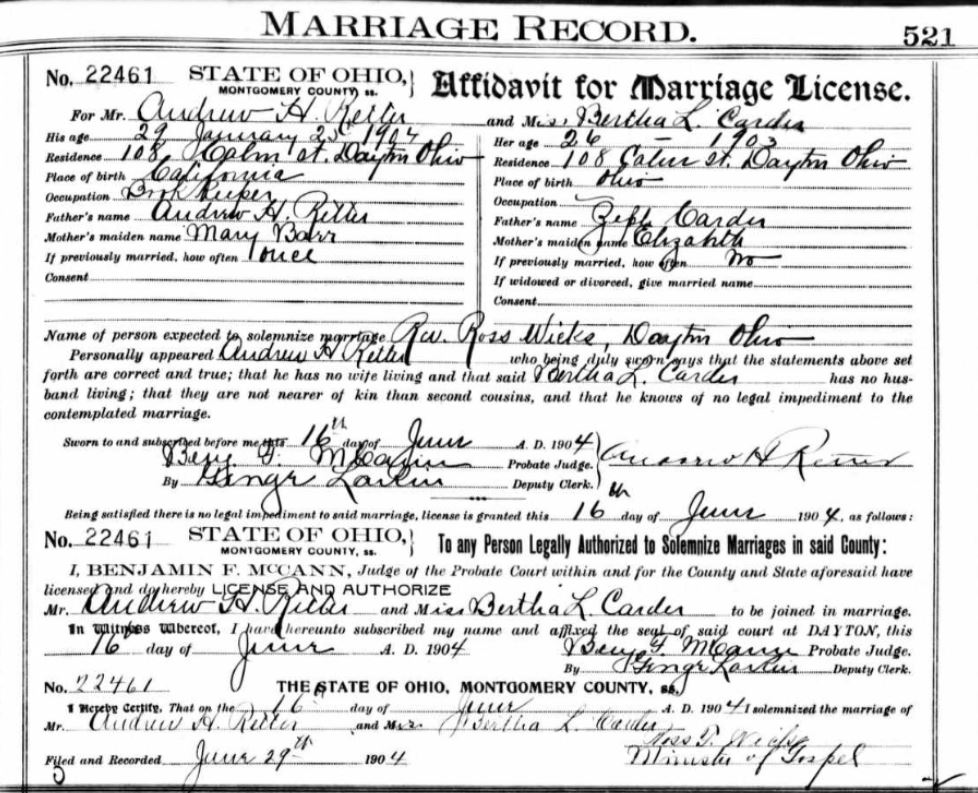 MARRIAGE RECORD.
521
No. 22461 STATE OF OHIO,
MONTGOMERY COUNTY, ss.
Affidavit for Marriage License.
For Mr. Andrew H. Ritter and Miss Bertha L. Carder
His age 29 January 25 1904
Residence 108 Calm st. Dayton Ohio
Place of birth California
Occupation Book Keeper
Father's name Andrew H. Ritter
Mother's maiden name Mary Barr
If previously married, how often once
Consent
Her age 26 — 1903
Residence 108 st. Dayton Ohio
Place of birth Ohio
Occupation
Father's name Carder
Mother's maiden name Elizabeth
If previously married, how often No
If widowed or divorced, give married name
Consent
Name of person expected to solemnize marriage Rev. Ross Wicks, Dayton Ohio
Personally appeared Andrew H Ritter who being duly sworn says that the statements above set
forth are correct and true; that he has no wife living and that said Bertha L. Carder has no hus-
band living; that they are not nearer of kin than second cousins, and that he knows of no legal impediment to the
contemplated marriage.
Sworn to and subscribed before me this 16th day of June A. D. 1904
Benj F. McCann Probate Judge.
Andrew H Ritter
By Larkin Deputy Clerk.
Being satisfied there is no legal impediment to said marriage, license is granted this 16th day of June 1904, as follows:
No. 22461 STATE OF OHIO,
MONTGOMERY COUNTY, ss.
To any Person Legally Authorized to Solemnize Marriages in said County:
I, BENJAMIN F. McCANN, Judge of the Probate Court within and for the County and State aforesaid have
licensed and do hereby LICENSE AND AUTHORIZE
Mr. Andrew H. Ritter and Miss Bertha L. Carder to be joined in marriage.
In Witness Whereof, I have hereunto subscribed my name and affixed the seal of said court at DAYTON, this
16 day of June A. D. 1904 Benj F. McCann Probate Judge.
By Larkin Deputy Clerk.
No. 22461 THE STATE OF OHIO, MONTGOMERY COUNTY, ss.
I Hereby Certify, That on the 16 day of June A. D. 1904 I solemnized the marriage of
Mr. Andrew H. Ritter and Miss Bertha L. Carder
Ross T. Wicks
Filed and Recorded June 29th 1904 Minister of Gospel